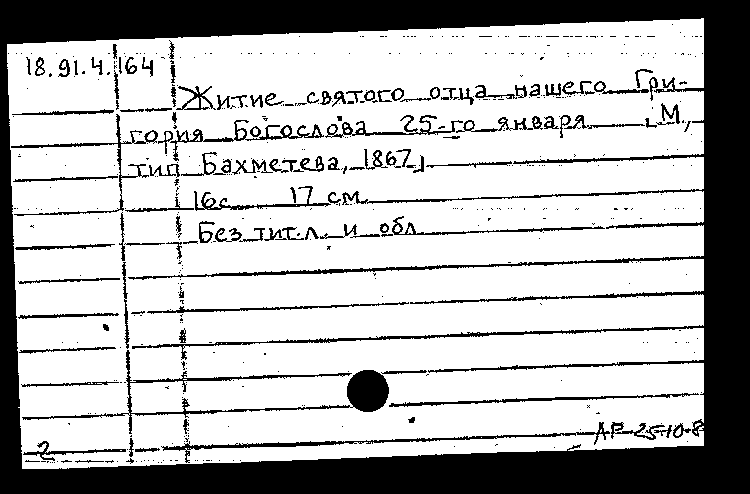 18.91.4.164
Житие святого отца нашего Гри-
гория Богослова 25-го января [М,
тип Бахметева, 1867].
16с 17 см
Без тит.л. и обл
2